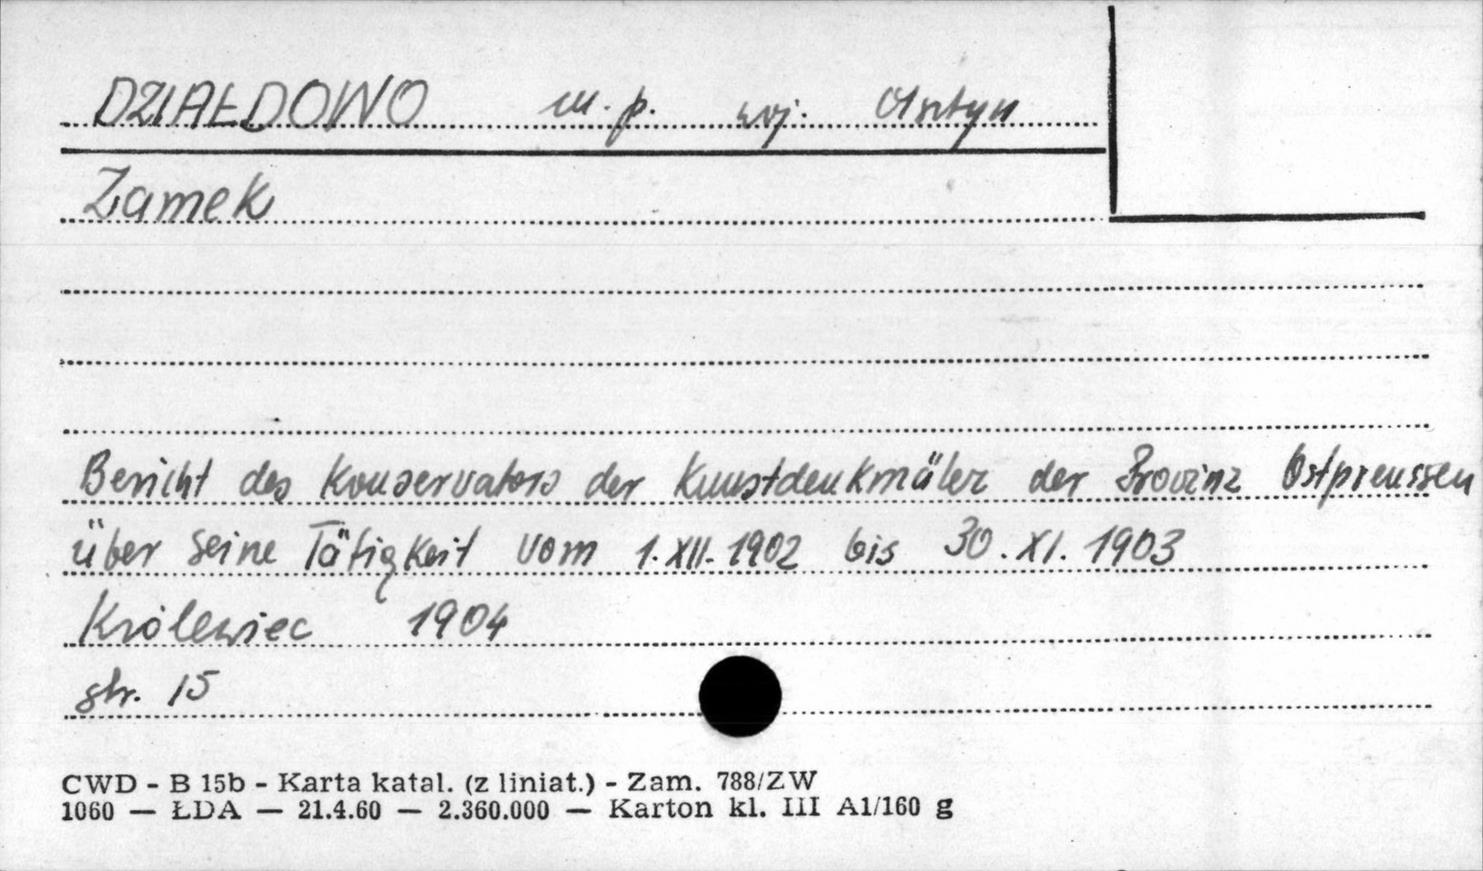 DZIAŁDOWO m.p. woj. Olsztyn
Zamek
Bericht des Konservators der Kunstdenkmäler der Provinz Ostpreussen
über seine Tätigkeit vom 1.XII.1902 bis 30.XI.1903
Królewiec 1904
str. 15
CWD - B 15b - Karta katal. (z liniat.) - Zam. 788/ZW
1060 — ŁDA — 21.4.60 — 2.360.000 — Karton kl. III A1/160 g